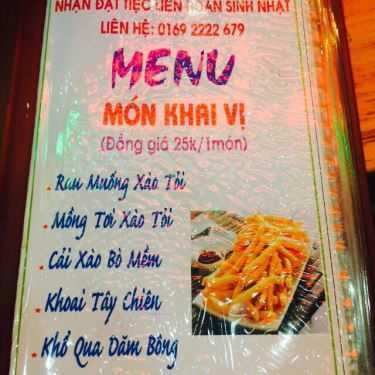 NHẬN ĐẶT TIỆC LIÊN HOAN SINH NHẬT
LIÊN HỆ: 0169 2222 679
MENU
MÓN KHAI VỊ
(Đồng giá 25k/1món)
Rau Muống Xào Tỏi
Mồng Tơi Xào Tỏi
Cải Xào Bò Mềm
Khoai Tây Chiên
Khổ Qua Dăm Bông